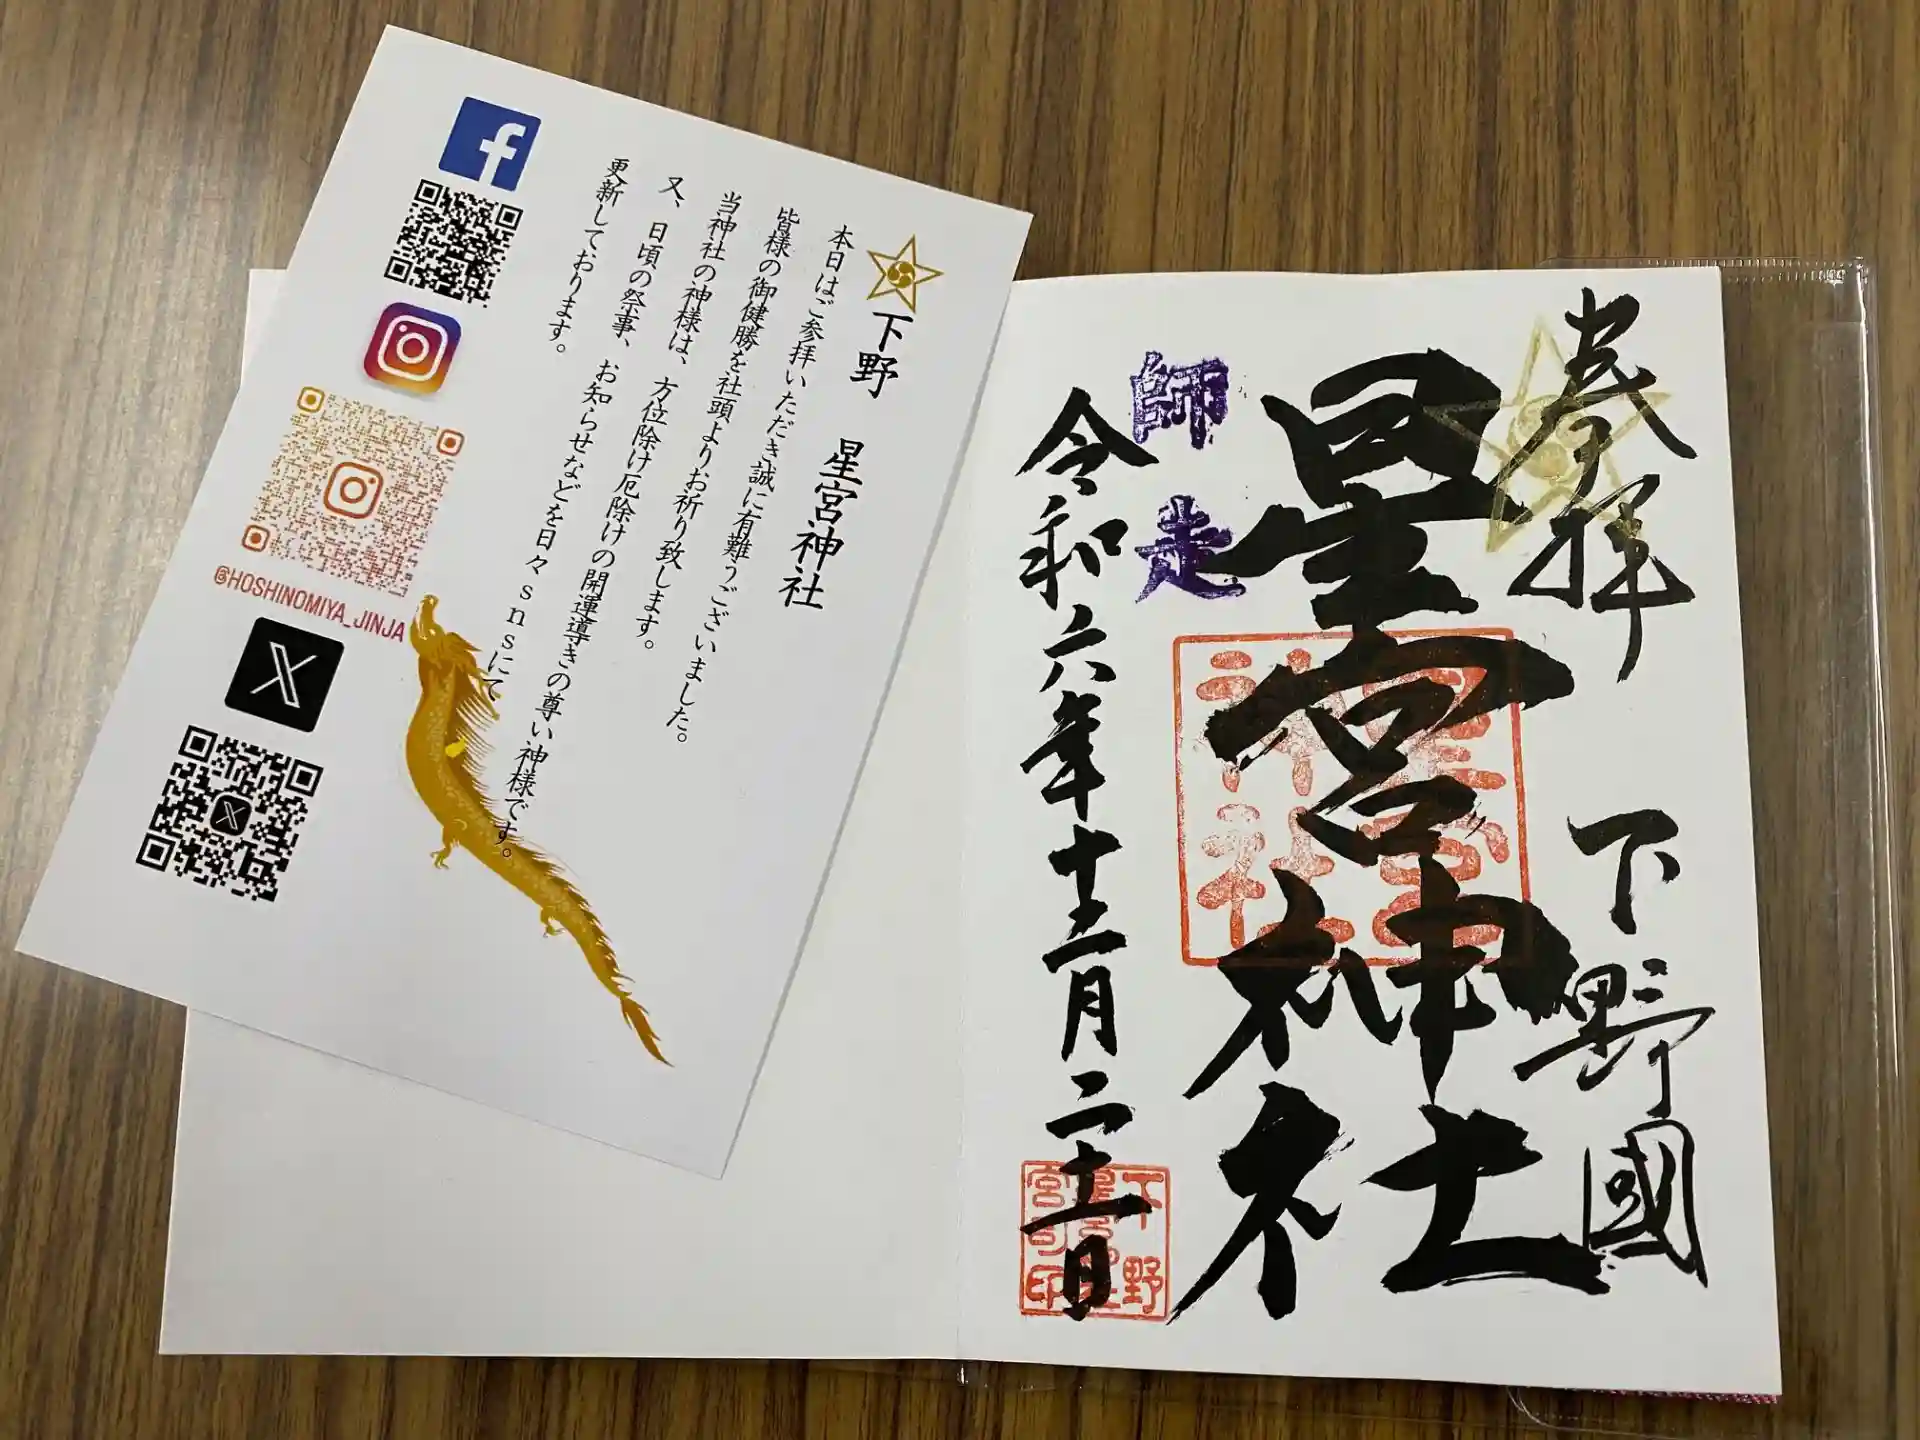 奉拝
下野國
星宮神社
師走
令和六年十二月二十一日
星宮
神社
下野
星宮神社
宮司印
下野 星宮神社
本日はご参拝いただき誠に有難うございました。
皆様の御健勝を社頭よりお祈り致します。
当神社の神様は、方位除け厄除けの開運導きの尊い神様です。
又、日頃の祭事、お知らせなどを日々snsにて
更新しております。
@HOSHINOMIYA_JINJA